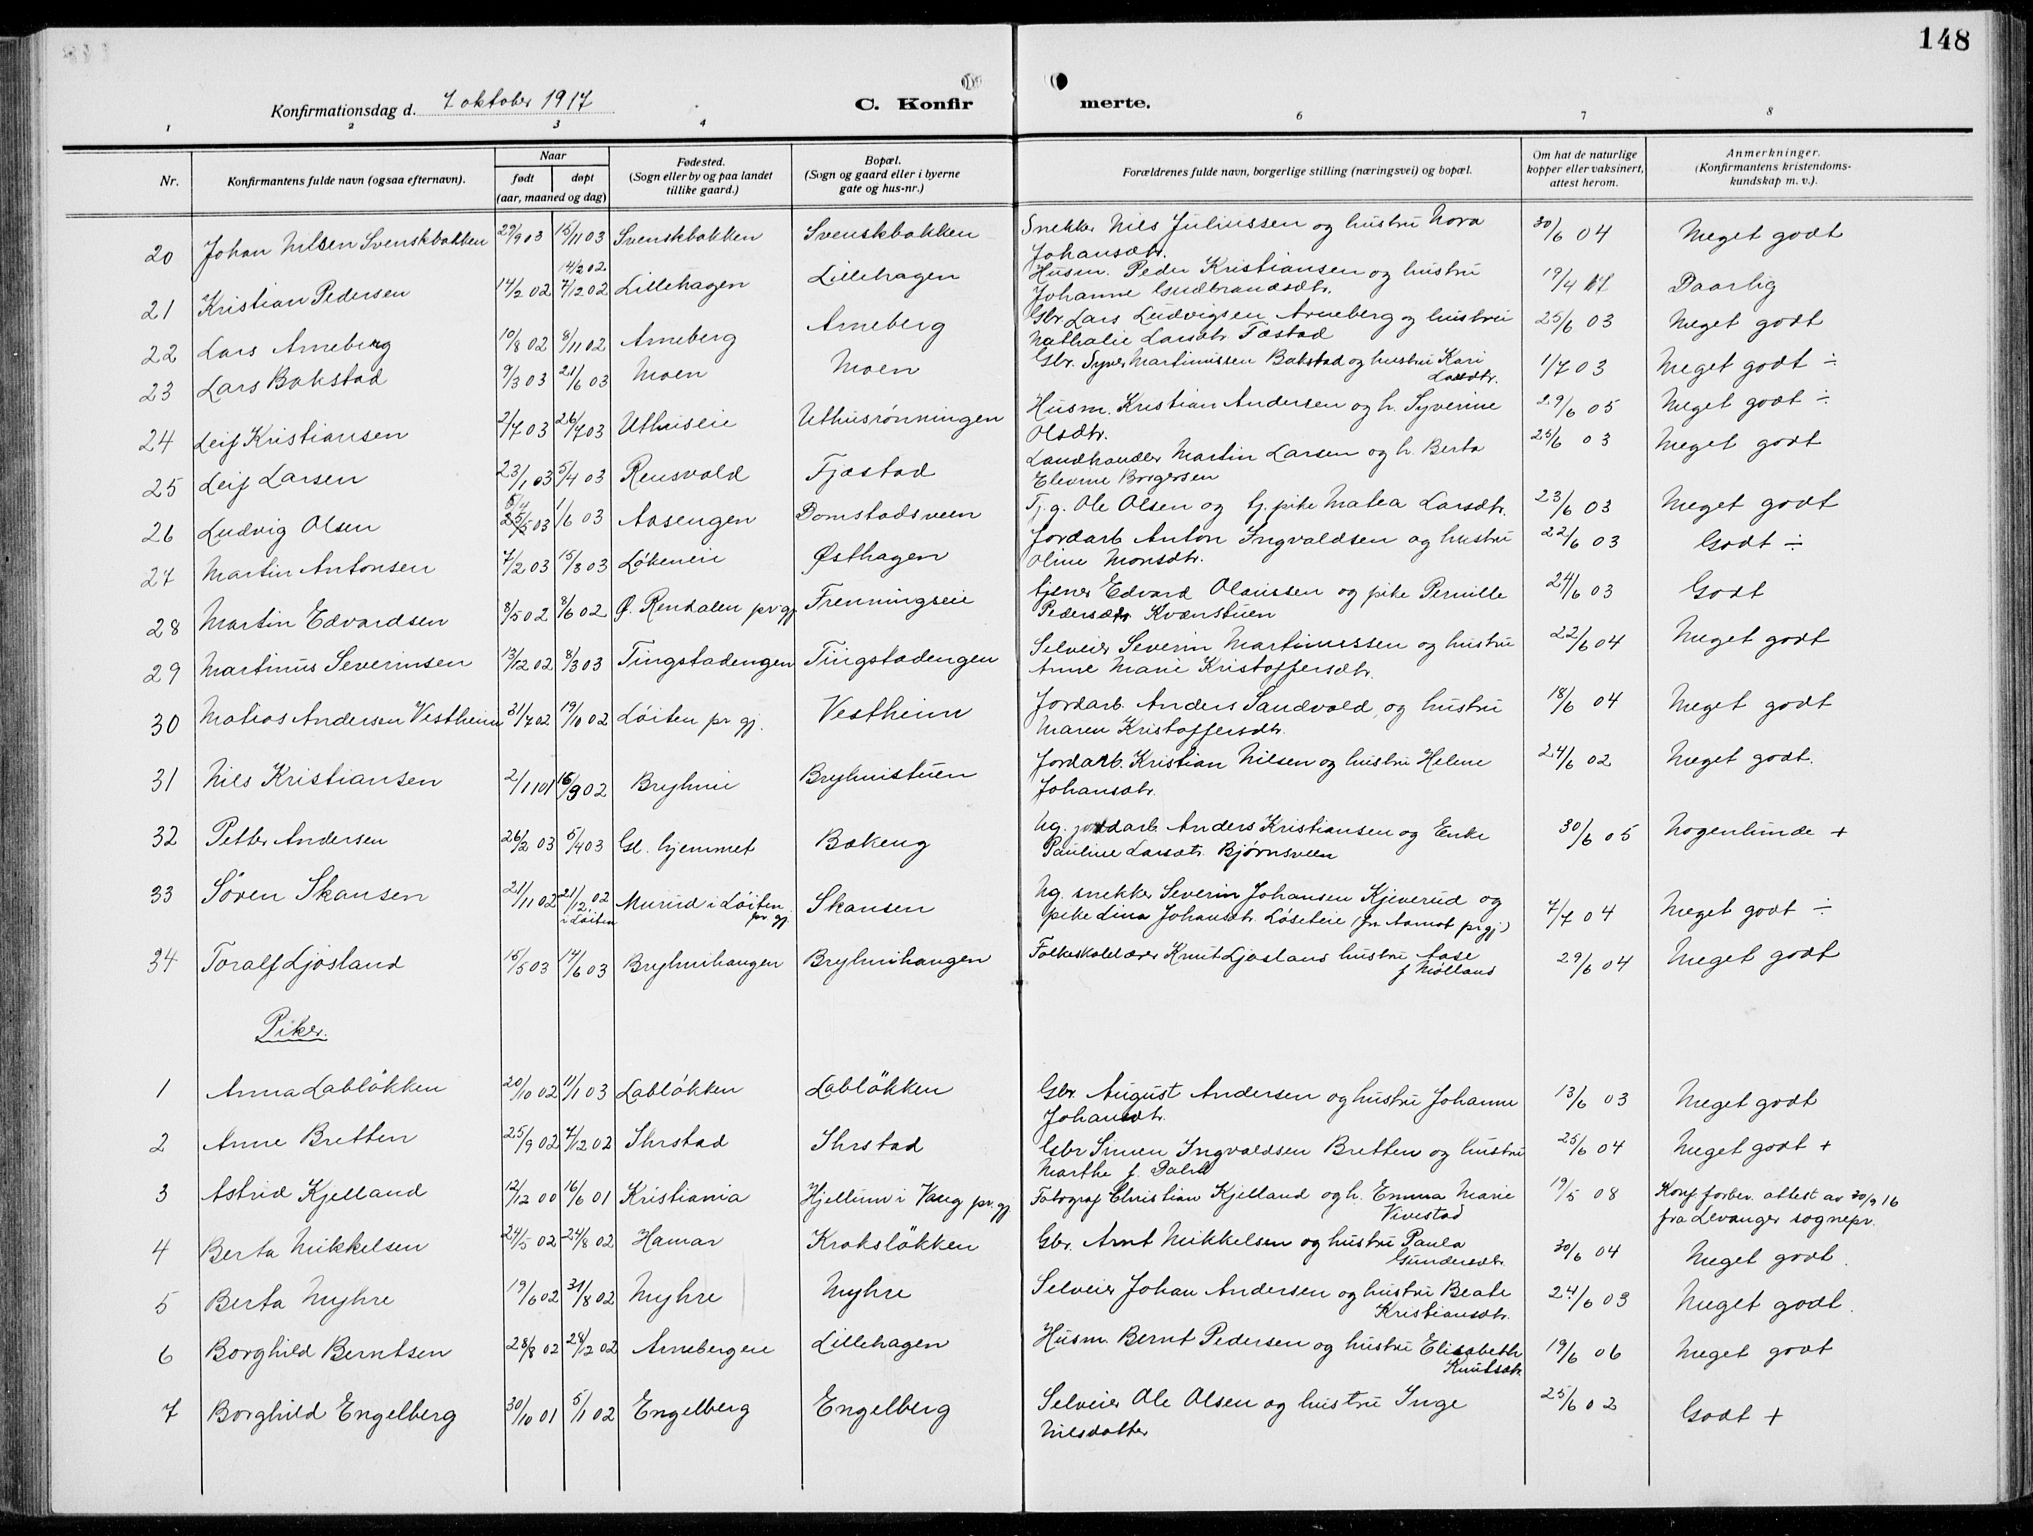 148
Konfirmationsdag d. 7 oktober 1917
C. Konfirmerte.
1 2 3 4 6 7 8
Nr. Konfirmantens fulde navn (ogsaa efternavn). Naar født døpt (aar, maaned og dag) Fødested. (Sogn eller by og paa landet tillike gaard.) Bopæl. (Sogn og gaard eller i byerne gate og hus-nr.) Forældrenes fulde navn, borgerlige stilling (næringsvei) og bopæl. Om hat de naturlige kopper eller vaksinert, attest herom. Anmerkninger. (Konfirmantens kristendomskundskap m. v.).
20 Johan Nilsen Svenskbakken 29/9 03 15/11 03 Svenskbakken Svenskbakken Snekker Nils Juliussen og hustru Nora Johansdtr. 30/6 04 Meget godt
21 Kristian Pedersen 14/2 02 14/2 02 7/12 02 Lillehagen Lillehagen Husm. Peder Kristiansen og hustru Johanne Gudbrandsdtr. 19/4 17 Daarlig
22 Lars Arneberg 10/8 02 8/11 02 Arneberg Arneberg Gbr Lars Ludvigsen Arneberg og hustru Nathalie Larsdtr. Fæstad 25/6 03 Meget godt
23 Lars Bakstad 9/3 03 21/6 03 Moen Moen Gbr. Syver Martinussen Bakstad og hustru Kari Larsdtr. 1/7 03 Meget godt ÷
24 Leif Kristiansen 2/7 03 26/7 03 Uthuseie Uthusrønningen Husm. Kristian Andersen og h. Syverine Olsdtr. 29/6 05 Meget godt ÷
25 Leif Larsen 23/1 03 5/4 03 Rensvold Fjæstad Landhandler Martin Larsen og h. Berta Elevine Borgersen 25/6 03 Meget godt
26 Ludvig Olsen 5/4 25/5 03 1/6 03 Aasengen Domstadsveen Tj.g. Ole Olsen og tj. pike Matea Larsdtr. 23/6 03 Meget godt
27 Martin Antonsen 7/2 03 15/8 03 Løkeneie Østhagen Jordarb Anton Ingvaldsen og hustru Oline Monsdtr. 22/6 03 Godt ÷
28 Martin Edvardsen 8/5 02 8/6 02 Ø. Rendalen pr gj Frenningseie tjener Edvard Olaussen og pike Pernille Pedersdtr Kvænstuen 24/6 03 Godt
29 Martinus Severinsen 13/12 02 8/3 03 Tingstadengen Tingstadengen Selveier Severin Martinussen og hustru Anne Marie Kristoffersdtr. 22/6 04 Meget godt
30 Matias Andersen Vestheim 31/7 02 19/10 02 Løiten pr gj. Vestheim Jordarb. Anders Sandvold, og hustru Maren Kristoffersdtr. 18/6 04 Meget godt
31 Nils Kristiansen 2/11 01 16/3 02 Bryhnie Bryhnistuen Jordarb. Kristian Nilsen og hustru Helene Johansdtr. 24/6 02 Meget godt.
32 Petter Andersen 26/2 03 5/4 03 Gl. hjemmet Bakeng Ug. jordarb. Anders Kristiansen og Enke Pauline Larsdtr. Bjørnsveen 30/6 05 Nogenlunde +
33 Søren Skansen 21/11 02 21/12 02 i Løiten Murud i Løiten pr. gj Skansen Ug. snekker Severin Johansen Kjeverud og pike Lina Johansdtr. Løseteie (fr. Aamot pr gj) 7/7 04 Meget godt ÷
34 Toralf Ljosland 15/5 03 14/6 03 Bryhnihaugen Bryhnihaugen Folkeskolelærer Knut Ljoslans hustru Aase f Mölland 29/6 04 Meget godt
Piker.
1 Anna Labløkken 20/10 02 11/1 03 Labløkken Labløkken Gbr. August Andersen og hustru Johanne Johansdtr. 13/6 03 Meget godt
2 Anne Bretten 25/9 02 7/12 02 Ihrstad Ihrstad Gbr Simen Ingvaldsen Bretten og hustru Marthe f. 25/6 04 Meget godt +
3 Astrid Kjelland 12/12 00 16/6 01 Kristiania Hjellum i Vang pr. gj Fotograf Christian Kjelland og h. Emma Marie Vivestad 19/5 08 Konf. forber. attest av 30/9 16 fra Levanger sognepr.
4 Berta Mikkelsen 24/5 02 24/8 02 Hamar Kraksløkken Gbr. Arnt Mikkelsen og hustru Paula Gundersdtr. 30/6 04 Meget godt.
5 Berta Myhre 19/6 02 31/8 02 Myhre Myhre Selveier Johan Andersen og hustru Beate Kristiansdtr. 24/6 03 Meget godt.
6 Borghild Berntsen 28/8 02 24/12 02 Arnebergeie Lillehagen Husm. Bernt Pedersen og hustru Elisabeth Knutsdtr 19/6 06 Meget godt
7 Borghild Engelberg 30/10 01 5/1 02 Engelberg Engelberg Selveier Ole Olsen og hustru Inge Nilsdatter 25/6 02 Godt +